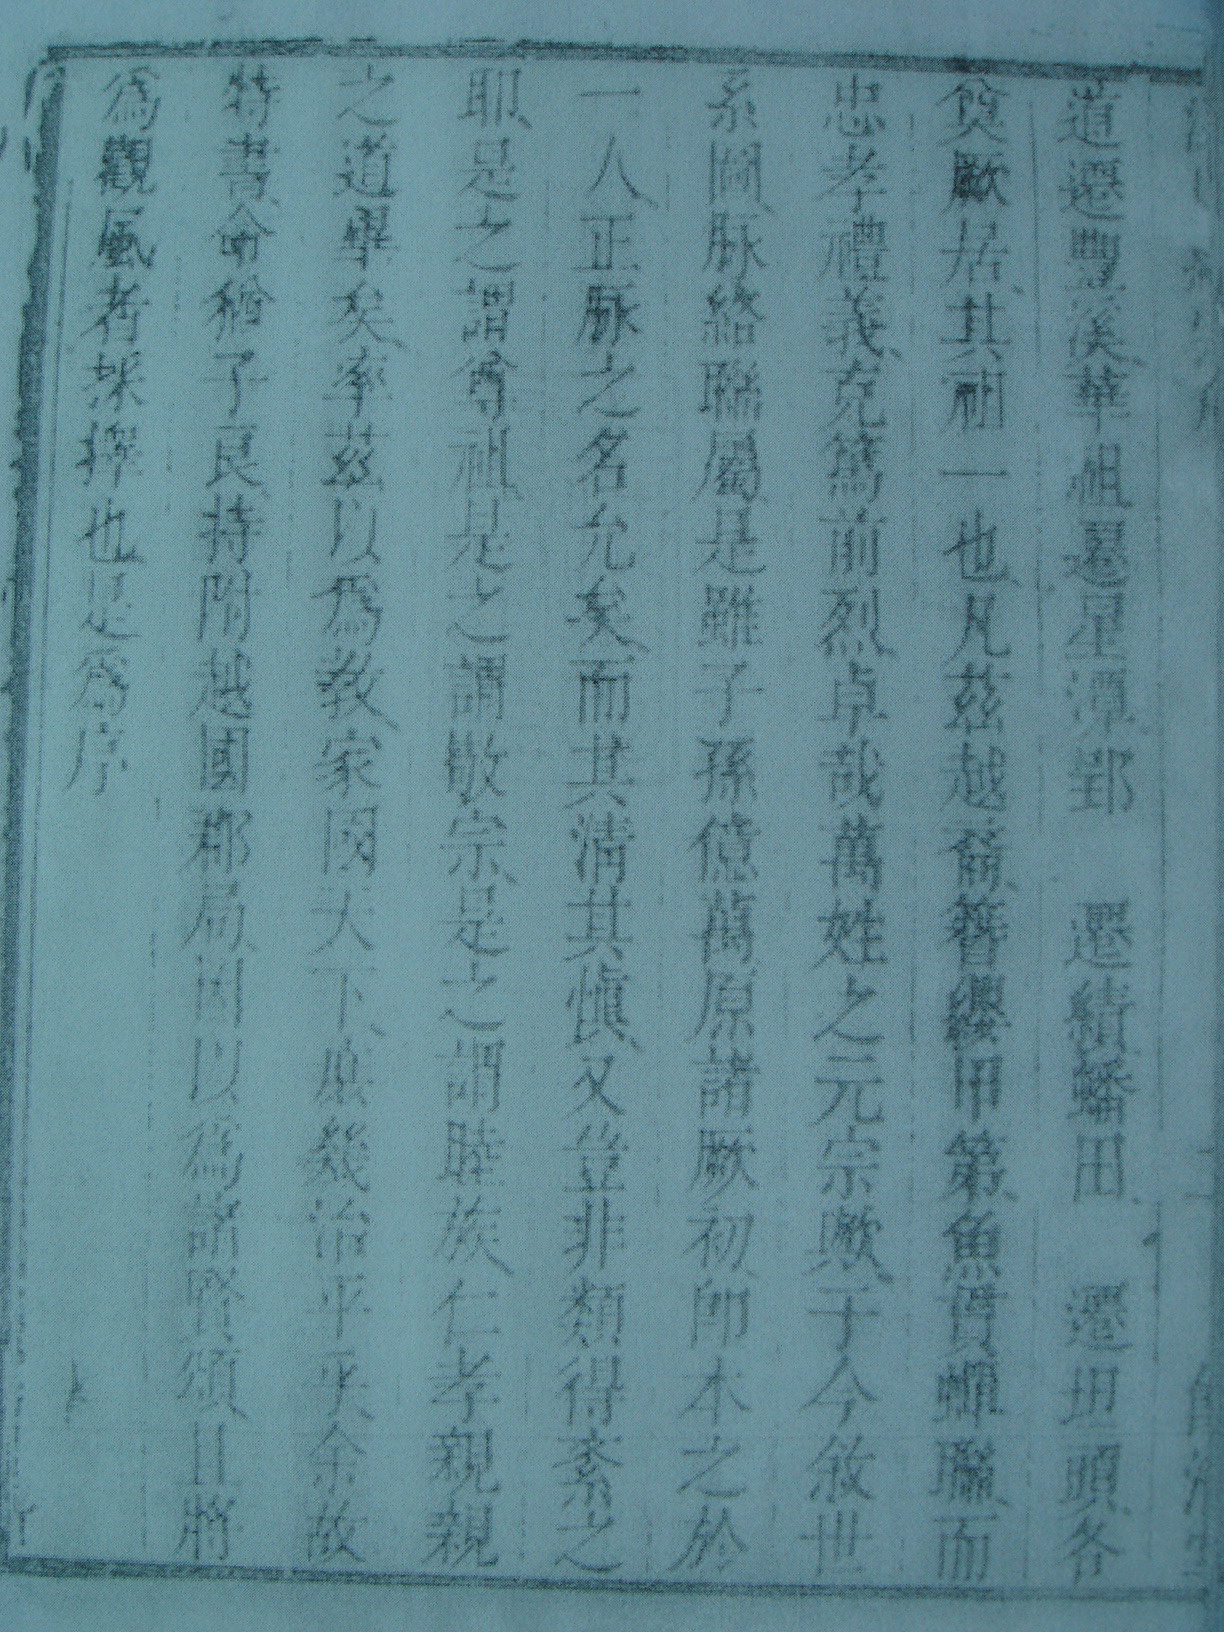 道遷豐溪華祖遷星潭鄣　遷績蟠田　遷坦頭各
奠厥居其祖一也凡茲越裔簪纓甲第魚貫蟬聯而
忠孝禮義克篤前烈卓哉萬姓之元宗歟于今敘世
系圖脉絡聯屬是雖子孫億萬原諸厥初即本之於
一人正脉之名允矣而其清其慎又豈非類得紊之
耶是之謂尊祖是之謂敬宗是之謂睦族仁孝親親
之道畢矣率茲以爲教家國天下庶幾治平乎余故
特書命猶子良持附越國郡局因以爲諸賢頌且將
爲觀風者採擇也是爲序